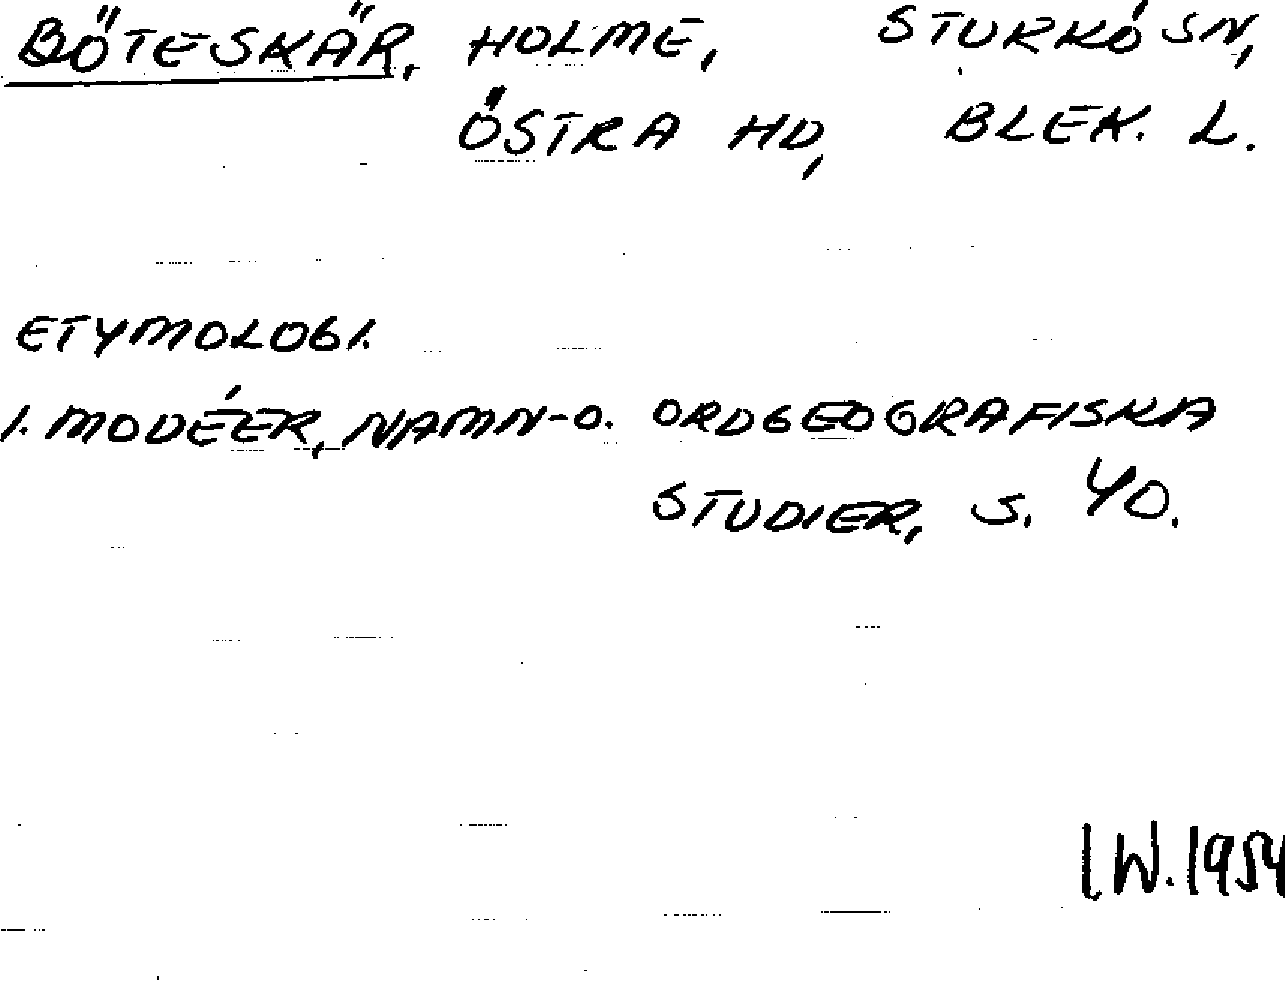 BÖTESKÄR, HOLME, STURKÖ SN,
ÖSTRA HD, BLEK. L.
ETYMOLOGI.
I. MODÉER, NAMN- O. ORDGEOGRAFISKA
STUDIER, S. 40.
I W. 1954